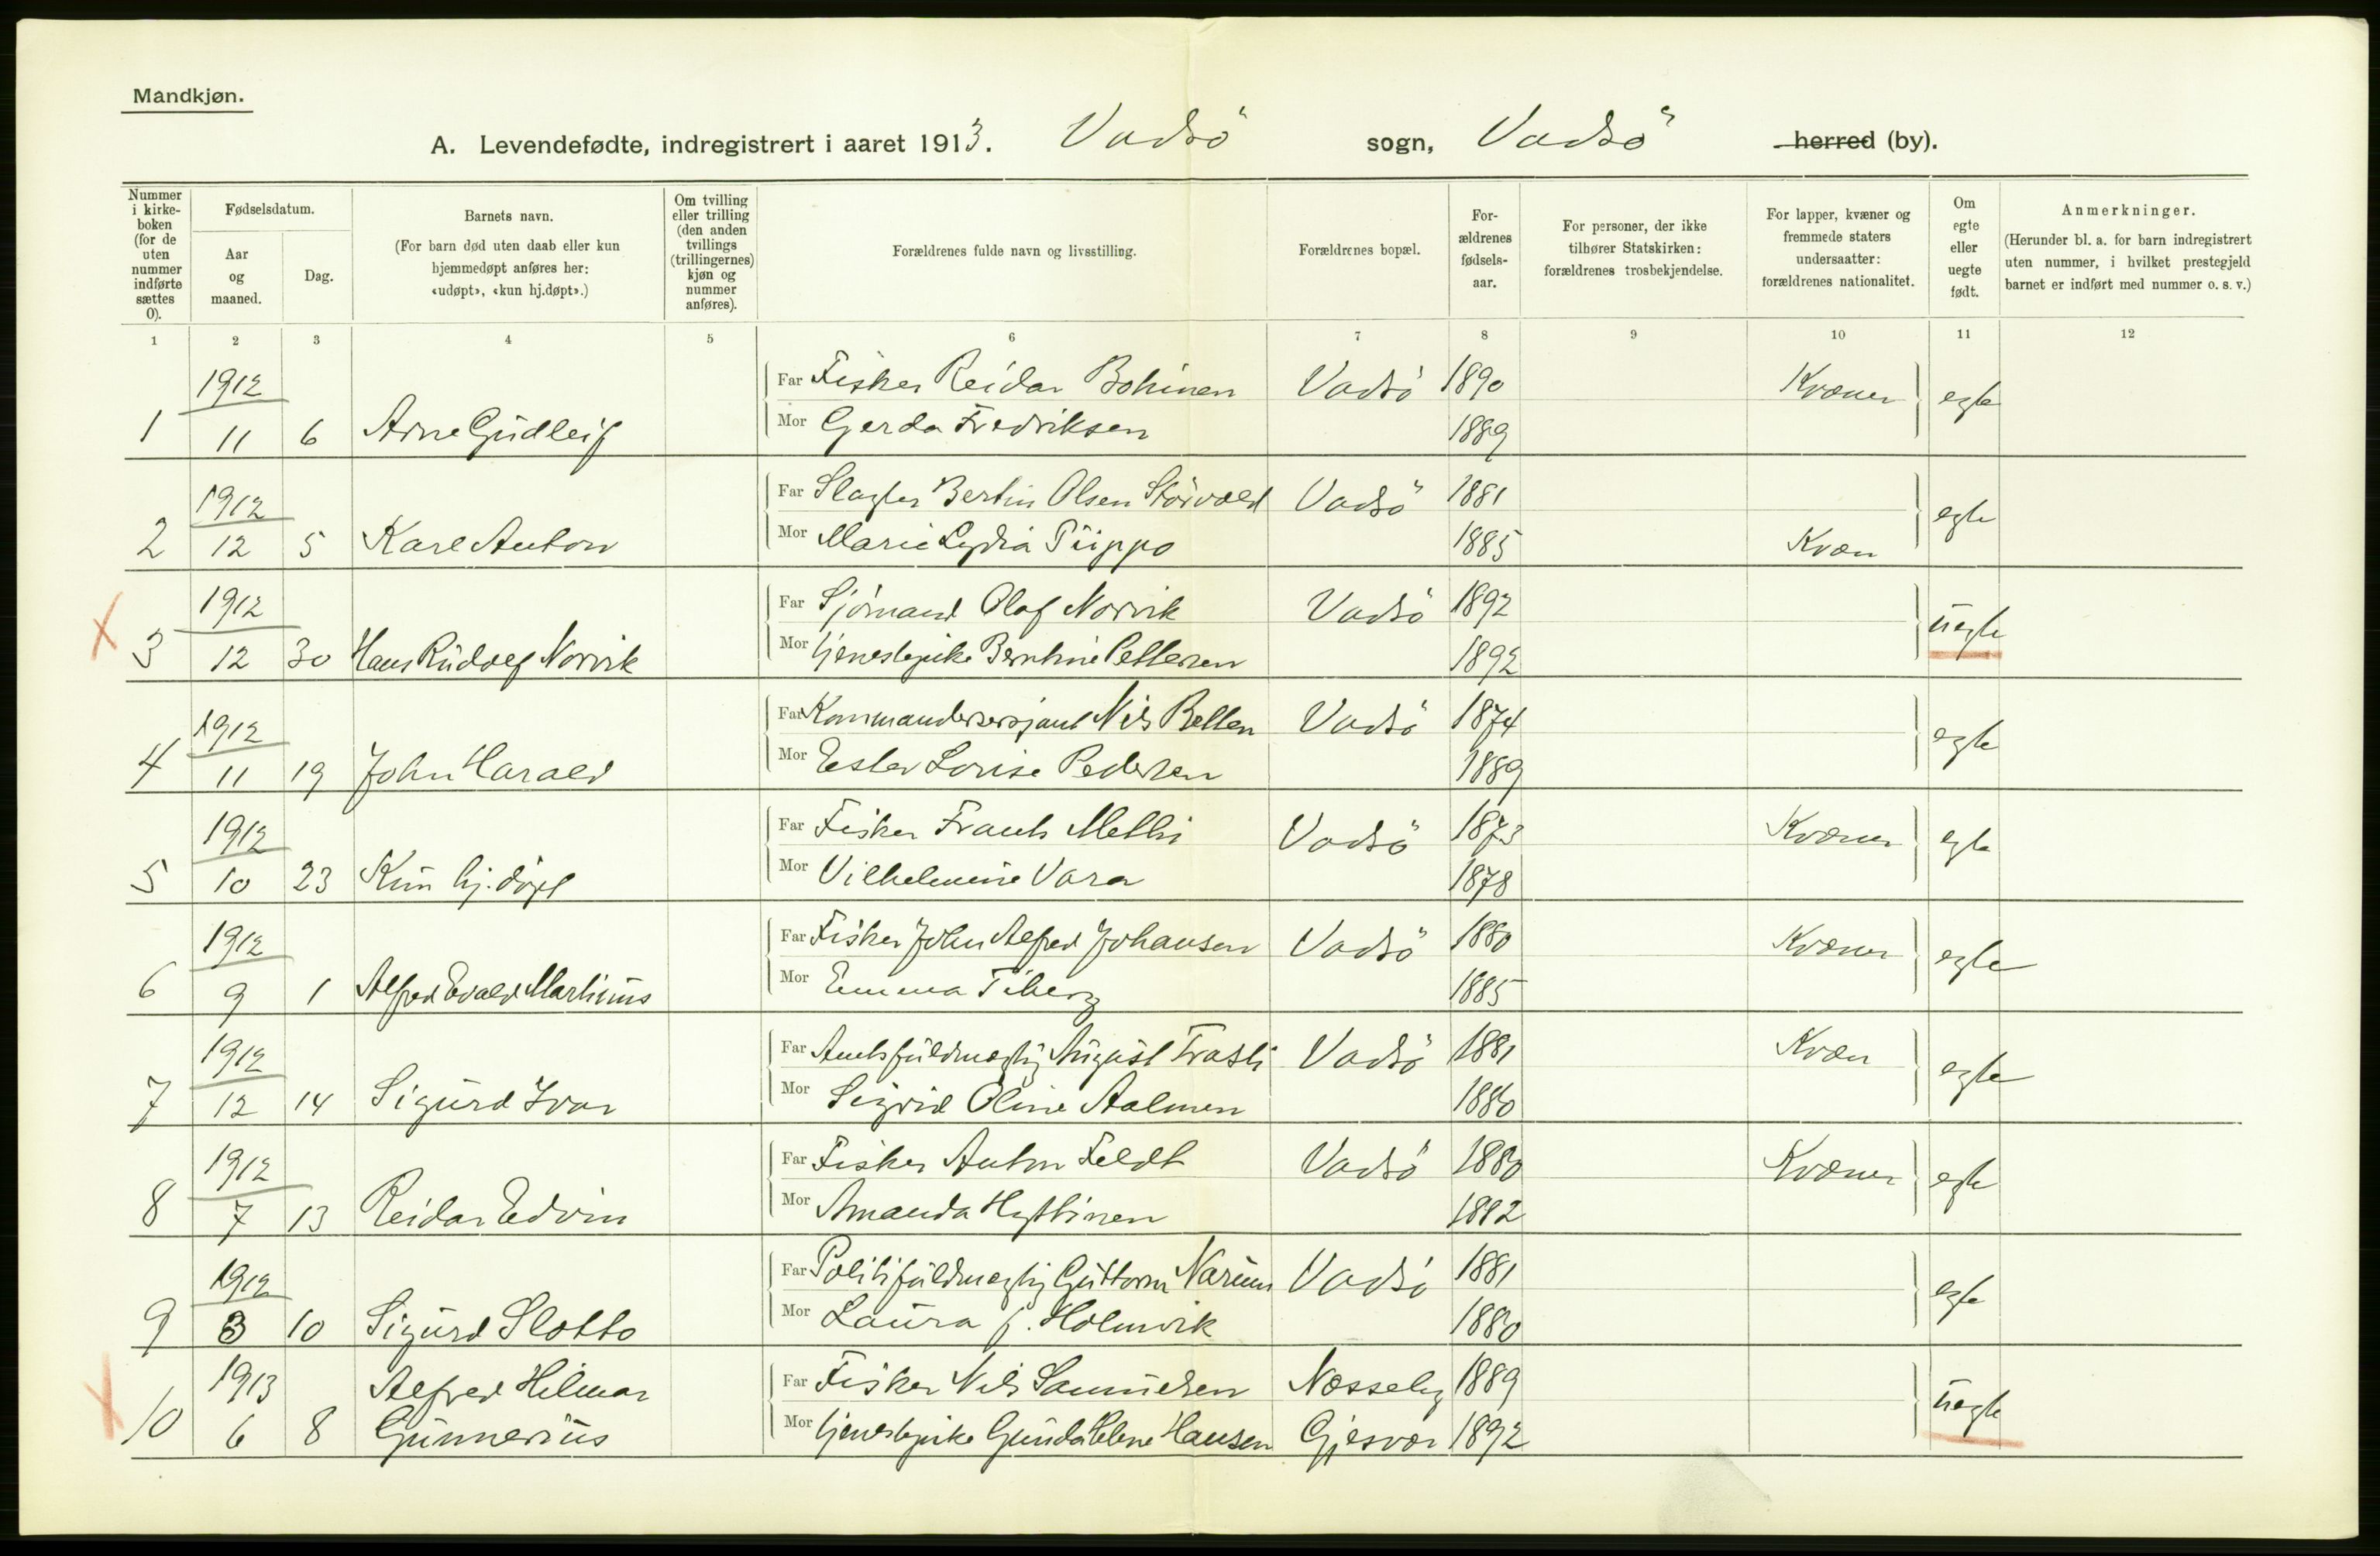 Mandkjøn.
A. Levendefødte, indregistrert i aaret 1913. Vadsö sogn, Vadsö herred (by).
Nummer i kirke-boken (for de uten nummer indførte sættes 0).
Fødselsdatum.
Aar og maaned.
Dag.
Barnets navn.
(For barn død uten daab eller kun hjemmedøpt anføres her: «udøpt», «kun hj.døpt».)
Om tvilling eller trilling (den anden tvillings (trillingernes) kjøn og nummer anføres).
Forældrenes fulde navn og livsstilling.
Forældrenes bopæl.
For-ældrenes fødsels-aar.
For personer, der ikke tilhører Statskirken: forældrenes trosbekjendelse.
For lapper, kvæner og fremmede staters undersaatter: forældrenes nationalitet.
Om egte eller uegte født.
Anmerkninger.
(Herunder bl. a. for barn indregistrert uten nummer, i hvilket prestegjeld barnet er indført med nummer o. s. v.)
1 2 3 4 5 6 7 8 9 10 11 12
1912 Far Fisker Reidar Bohinen Vadsö 1890 Kvæner egte
1 11 6 Arne Gudleif Mor Gerda Fredriksen 1889
1912 Far Slagter Bertin Olsen Vadsö 1881 egte
2 12 5 Karl Anton Mor Marie Lydia Piippo 1885 Kvæn
1912 Far Sjömand Olaf Norvik Vadsö 1892 uegte
3 12 30 Hans Rudolf Norvik Mor tjenestepike Berntine Pettersen 1892
1912 Far Kommandersersjant Nils Betten Vadsö 1874 egte
4 11 19 John Harald Mor Ester Lovise Pedersen 1889
1912 Far Fisker Frants Methi Vadsö 1873 Kvæner egte
5 10 23 Kun hj.döpt Mor Vilhelmine Vara 1878
1912 Far Fisker John Alfred Johansen Vadsö 1880 Kvæner egte
6 9 1 Alfred Evald Martinius Mor Emma Tiberg 1885
1912 Far Amtsfuldmægtig August Trasti Vadsö 1881 Kvæn egte
7 12 14 Sigurd Ivar Mor Sigrid Oline Aalmen 1880
1912 Far Fisker Anton Feldt Vadsö 1880 Kvæner egte
8 7 13 Reidar Edvin Mor Amanda Hyttinen 1882
1912 Far Politifuldmægtig Guttorm Narum Vadsö 1881 egte
9 3 10 Sigurd Slotto Mor Laura J. Holmvik 1880
1913 Alfred Hilmar Far Fisker Nils Samuelsen Næsseby 1889 uegte
10 6 8 Gunnerius Mor tjenestepike Gunda Helene Hansen Gjesvær 1892